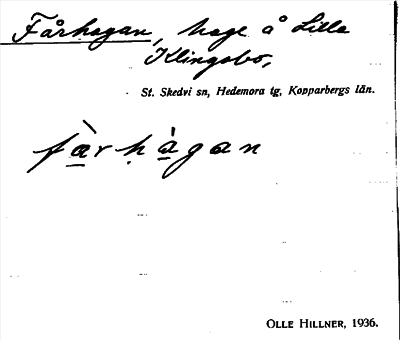 Fårhagan, hage å Lilla
Klingsbo,
St. Skedvi sn, Hedemora tg, Kopparbergs län.
fà̱rḥà̱gan
OLLE HILLNER, 1936.